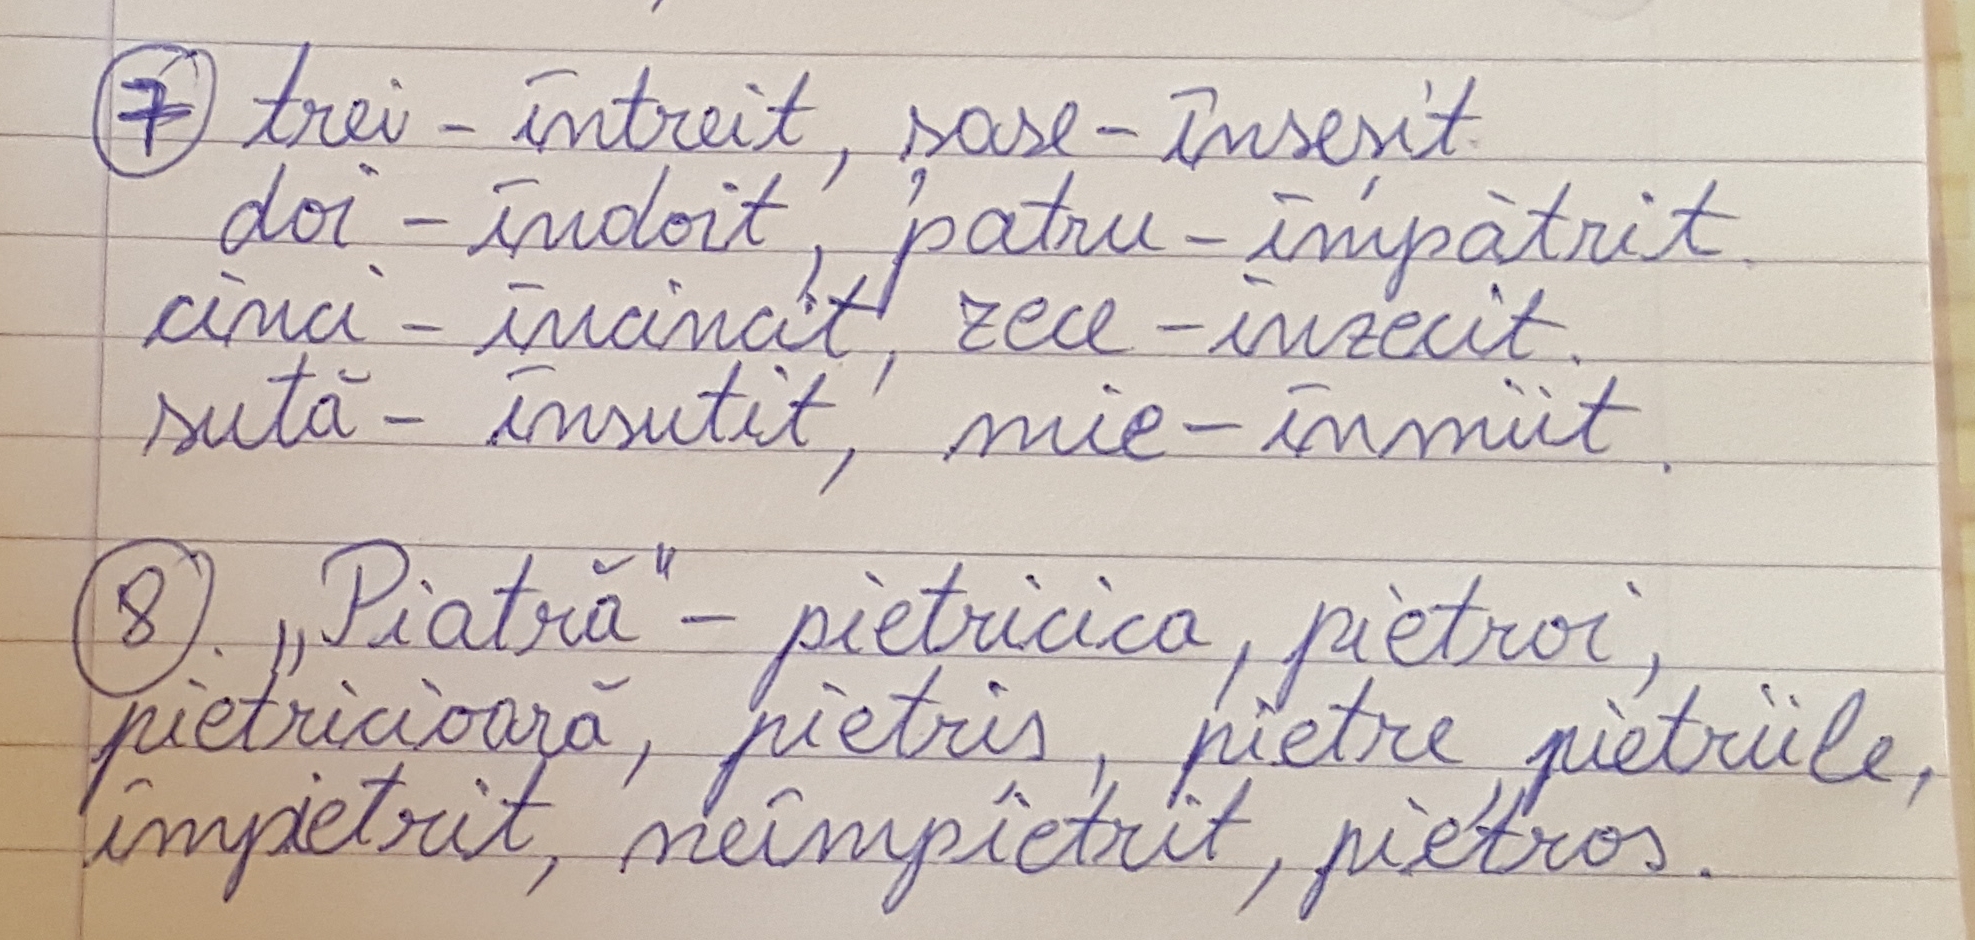 7 trei - întreit, sase - însesit.
doi - îndoit, patru - împătrit.
cinci - încincit, zece - inzecit.
sută - însutit, mie - înmiit.
8. „Piatră" - pietricica, pietroi,
pietricioară, pietris, pietre pietriile,
împietrit, neîmpietrit, pietros.